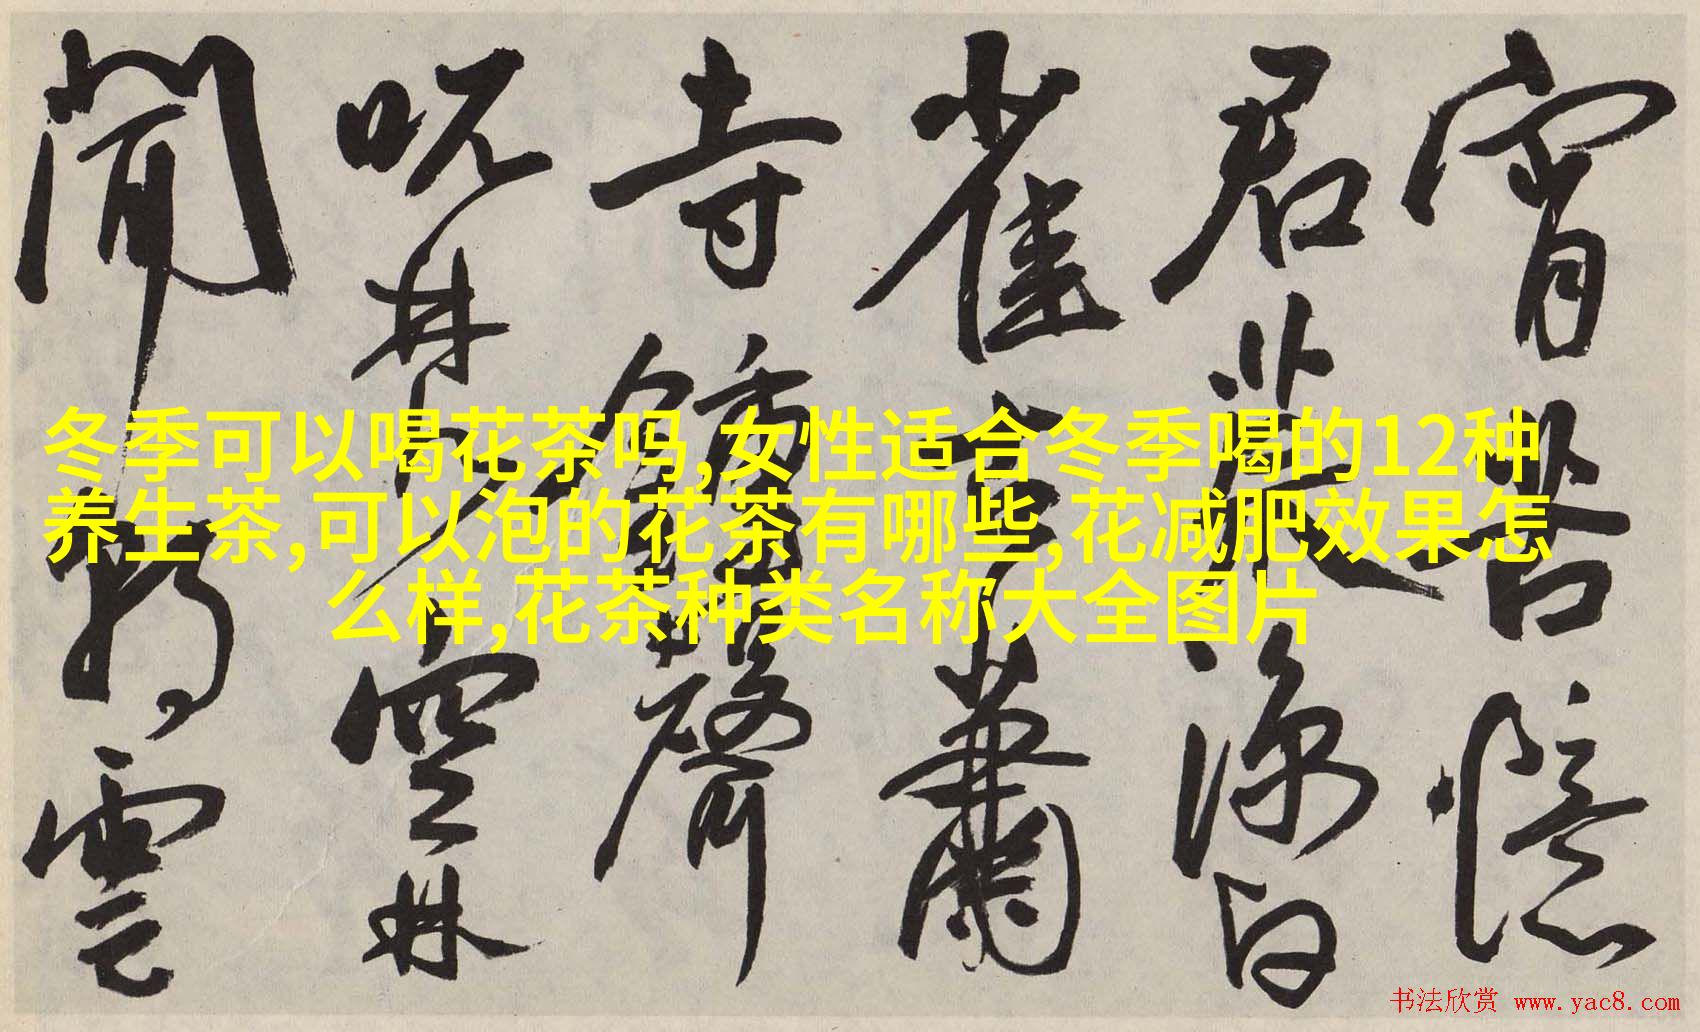 冬季可以喝花茶吗,女性适合冬季喝的12种
养生茶,可以泡的花茶有哪些,花减肥效果怎
么样,花茶种类名称大全图片
宵苦憶
君深
雀蕭
寺鐘聲
空林
雲
书法欣赏 www.yac8.com